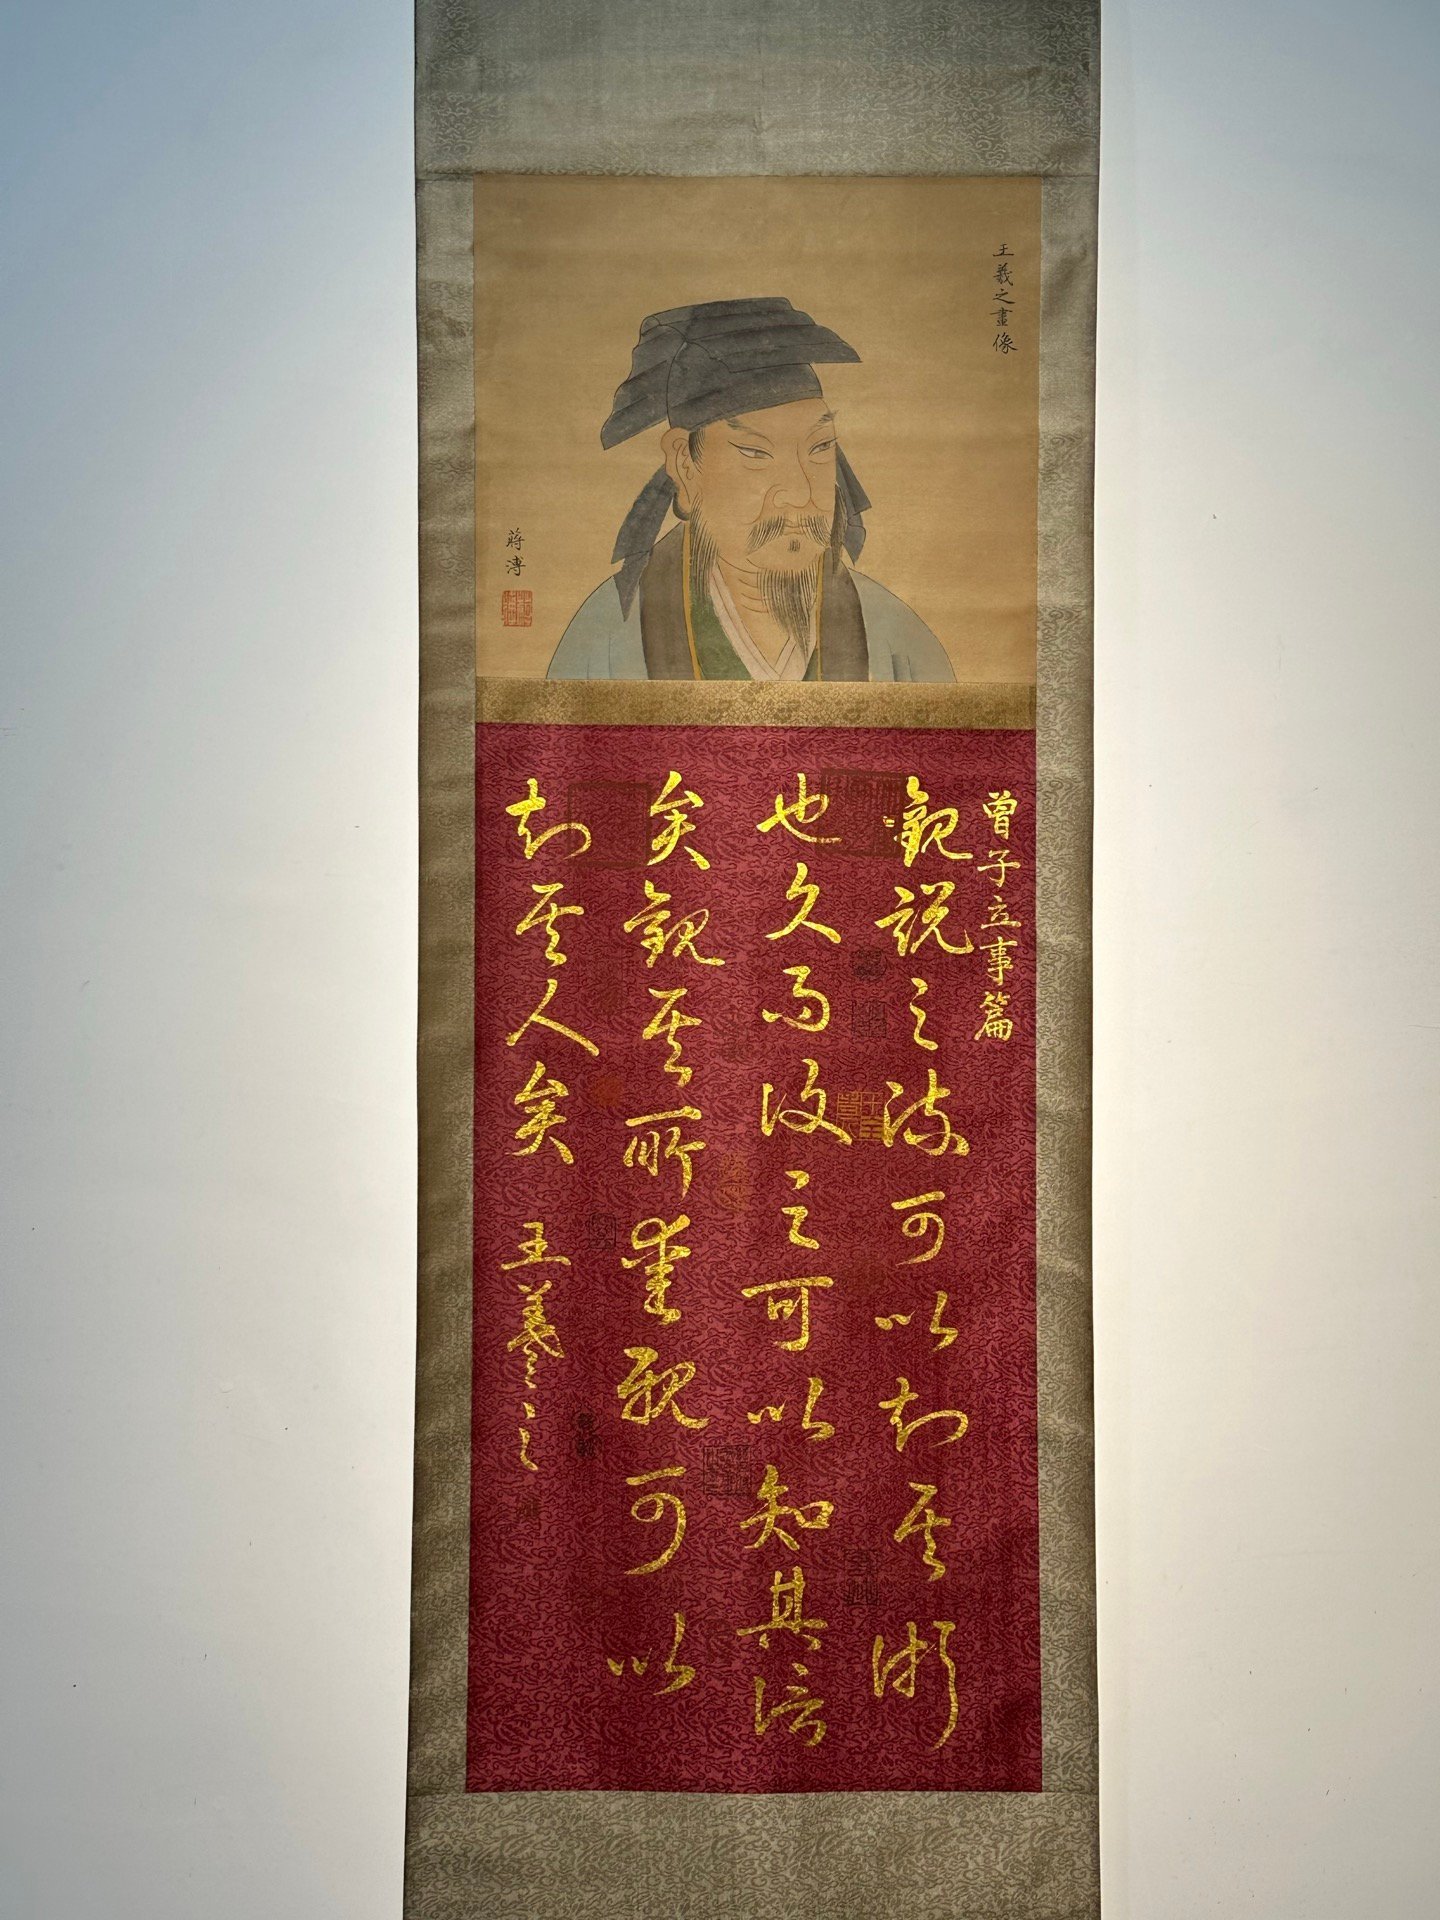 王羲之畫像
蔣溥
曾子立事篇
觀說之流可以知其術
也久而復之可以知其信
矣觀其所愛親可以
知其人矣 王羲之